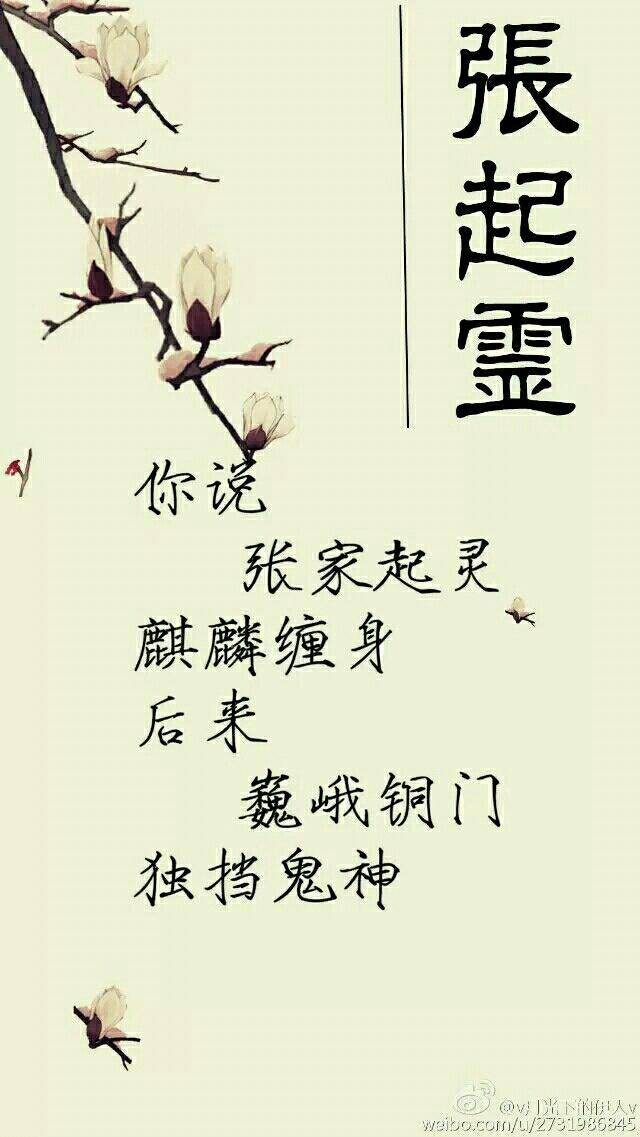 張起霊
你说
张家起灵
麒麟缠身
后来
巍峨铜门
独挡鬼神
@v月光下的伊人v
weibo.com/u/2731986845